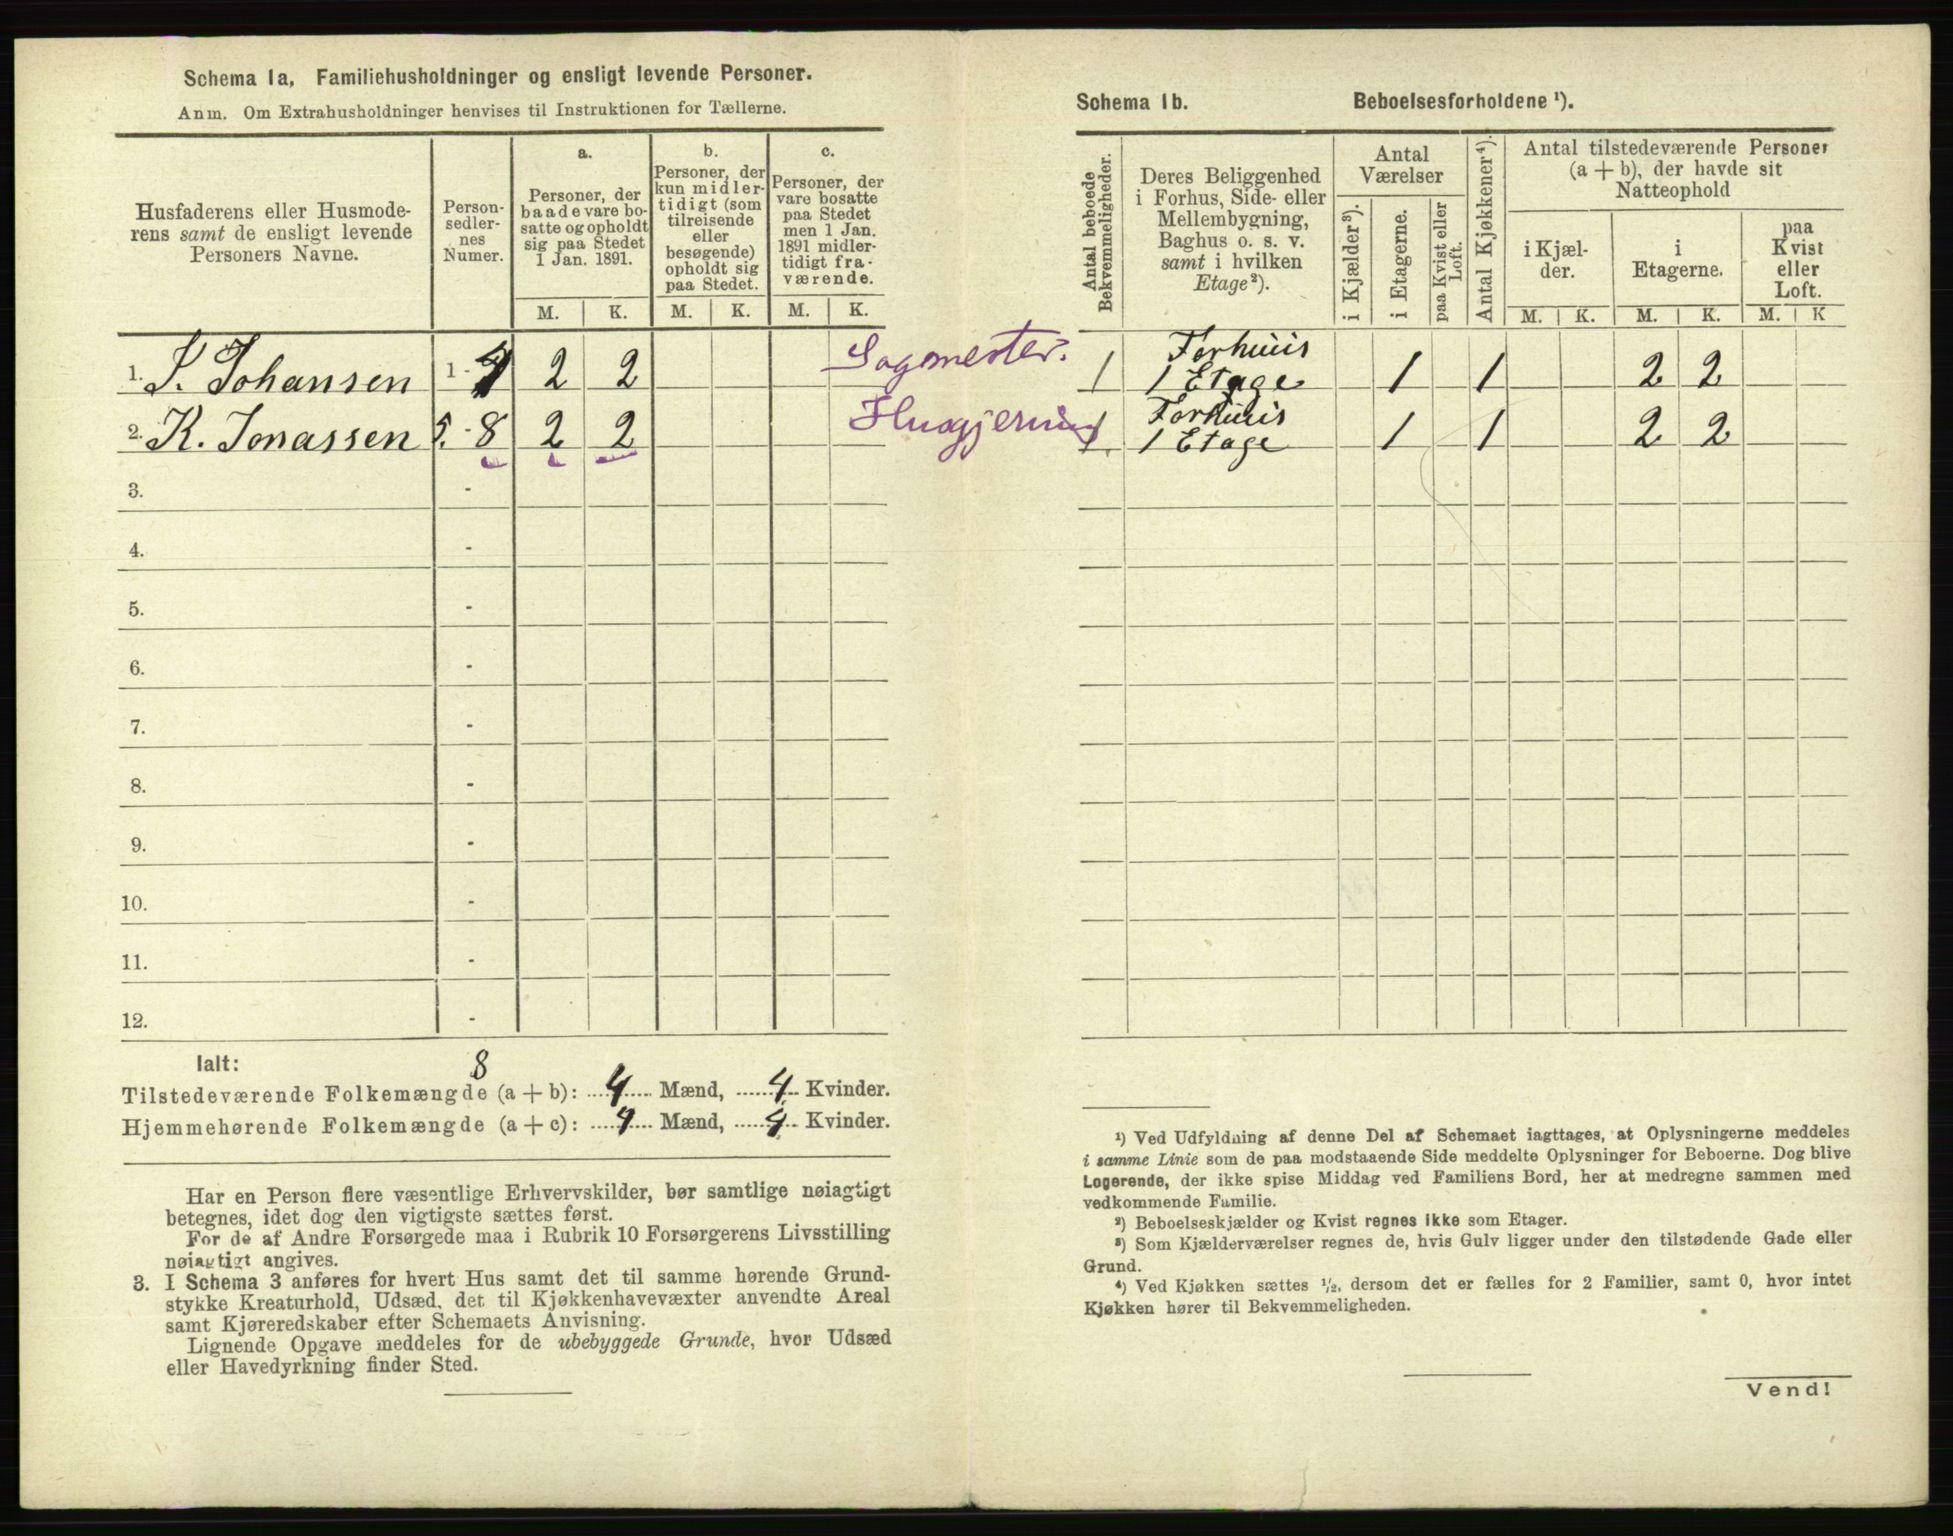 Schema 1a, Familiehusholdninger og ensligt levende Personer.
Anm. Om Extrahusholdninger henvises til Instruktionen for Tællerne.
Husfaderens eller Husmode-
rens samt de ensligt levende
Personers Navne.
Person-
sedler-
nes
Numer.
a.
Personer, der
baade vare bo-
satte og opholdt
sig paa Stedet
1 Jan. 1891.
b.
Personer, der
kun midler-
tidigt (som
tilreisende
eller
besøgende)
opholdt sig
paa Stedet.
c.
Personer, der
vare bosatte
paa Stedet
men 1 Jan.
1891 midler-
tidigt fra-
værende.
M. K. M. K. M. K.
1. J. Johansen 1-4 2 2 Sagmester.
2. K. Jonassen 5.-8 2 2
3. -
4. -
5. -
6. -
7. -
8. -
9. -
10. -
11. -
12. -
Ialt: 8
Tilstedeværende Folkemængde (a + b): 4 Mænd, 4 Kvinder.
Hjemmehørende Folkemængde (a + c): 4 Mænd, 4 Kvinder.
Har en Person flere væsentlige Erhvervskilder, bør samtlige nøiagtigt
betegnes, idet dog den vigtigste sættes først.
For de af Andre Forsørgede maa i Rubrik 10 Forsørgerens Livsstilling
nøiagtigt angives.
3. I Schema 3 anføres for hvert Hus samt det til samme hørende Grund-
stykke Kreaturhold, Udsæd, det til Kjøkkenhavevæxter anvendte Areal
samt Kjøreredskaber efter Schemaets Anvisning.
Lignende Opgave meddeles for de ubebyggede Grunde, hvor Udsæd
eller Havedyrkning finder Sted.
Schema 1b. Beboelsesforholdene ¹).
Antal beboede
Bekvemmeligheder.
Deres Beliggenhed
i Forhus, Side- eller
Mellembygning,
Baghus o. s. v.
samt i hvilken
Etage²).
Antal
Værelser
i Kjælder³).
i Etagerne.
paa Kvist eller
Loft.
Antal Kjøkkener⁴).
Antal tilstedeværende Personer
(a + b), der havde sit
Natteophold
i Kjæl-
der.
i
Etagerne.
paa
Kvist
eller
Loft.
M. K. M. K. M. K
1 Forhuus
1 Etage 1 1 2 2
1 Forhuus
1 Etage 1 1 2 2
¹) Ved Udfyldning af denne Del af Schemaet iagttages, at Oplysningerne meddeles
i samme Linie som de paa modstaaende Side meddelte Oplysninger for Beboerne. Dog blive
Logerende, der ikke spise Middag ved Familiens Bord, her at medregne sammen med
vedkommende Familie.
²) Beboelseskjælder og Kvist regnes ikke som Etager.
³) Som Kjælderværelser regnes de, hvis Gulv ligger under den tilstødende Gade eller
Grund.
⁴) Ved Kjøkken sættes ½, dersom det er fælles for 2 Familier, samt 0, hvor intet
Kjøkken hører til Bekvemmeligheden.
Vend!